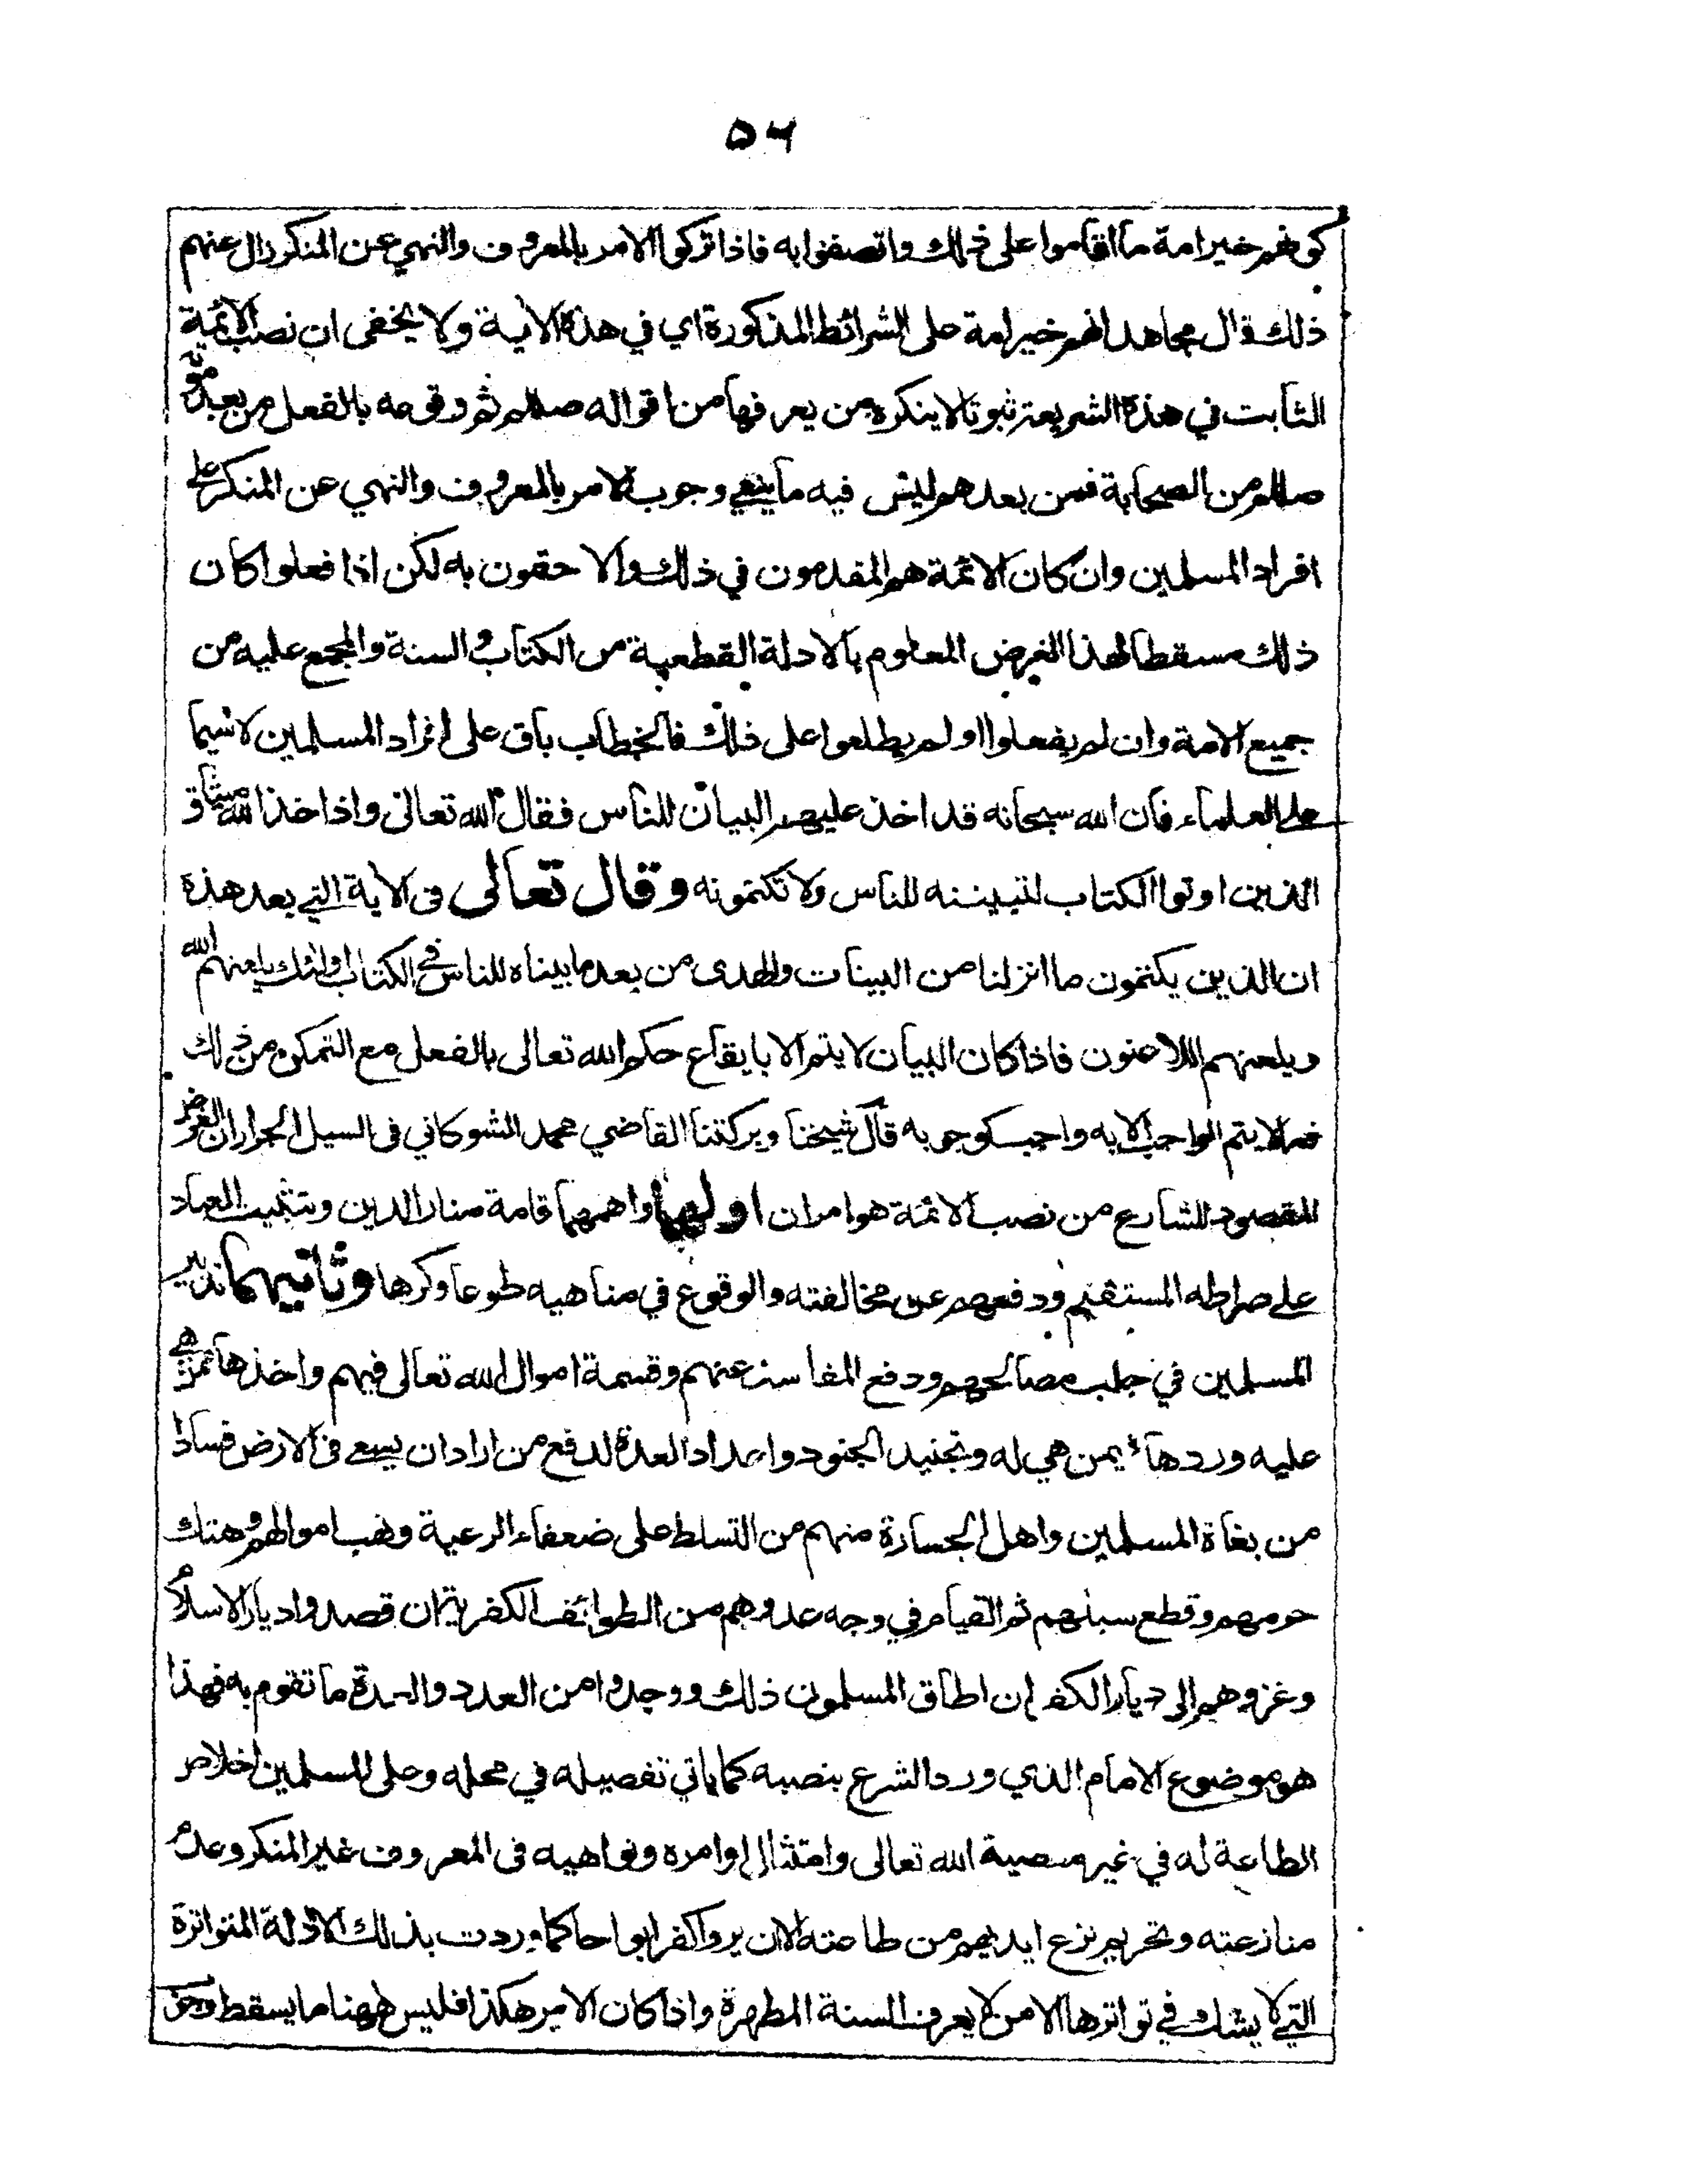 ٥٦
كونهم خير امة ما اقاموا على ذلك واتصفوا به فاذا تركوا الامر بالمعروف والنهي عن المنكر زال عنهم
ذلك قال مجاهد انهم خير امة على الشرائط المذكورة اي في هذه الاية ولا يخفى ان نصب الائمة
الثابت في هذه الشريعة ثبوتا لا ينكره من يعرفها من اقواله صللم ثم وقوعه بالفعل من بعد موته
صللم من الصحابة فمن بعدهم ليس فيه ما ينفي وجوب الامر بالمعروف والنهي عن المنكر على
افراد المسلمين وان كان الائمة هم المقدمون في ذلك والاحقون به لكن اذا فعلوا كان
ذلك مسقطا لهذا الفرض المعلوم بالادلة القطعية من الكتاب والسنة والمجمع عليه من
جميع الامة وان لم يفعلوا او لم يطلعوا على ذلك فالخطاب باق على افراد المسلمين لاسيما
على العلماء فان الله سبحانه قد اخذ عليهم البيان للناس فقال الله تعالى واذ اخذ الله ميثاق
الذين اوتوا الكتاب لتبيننه للناس ولا تكتمونه وقال تعالى فى الاية التي بعد هذه
ان الذين يكتمون ما انزلنا من البينات والهدى من بعد ما بيناه للناس في الكتاب اولئك يلعنهم الله
ويلعنهم اللاعنون فاذا كان البيان لا يتم الا بايقاع حكم الله تعالى بالفعل مع التمكن من ذلك
فما لا يتم الواجب الا به واجب كوجوبه قال شيخنا وبركتنا القاضي محمد الشوكاني فى السيل الجرار ان الغرض
المقصود للشارع من نصب الائمة هو امران اولهما واهمهما اقامة منار الدين وتثبيت العباد
على صراطه المستقيم ودفعهم عن مخالفته والوقوع في مناهيه طوعا وكرها وثانيهما تدبير
المسلمين في جلب مصالحهم ودفع المفاسد عنهم وقسمة اموال الله تعالى فيهم واخذها ممن هي
عليه وردها فيمن هي له وتجنيد الجنود واعداد العدة لدفع من اراد ان يسعى فى الارض فسادا
من بغاة المسلمين واهل الجسارة منهم من التسلط على ضعفاء الرعية ونهب اموالهم وهتك
حرمهم وقطع سبلهم ثم القيام في وجه عدوهم من الطوائف الكفرية ان قصدوا ديار الاسلام
وغزوهم إلى ديار الكفر إن اطاق المسلمون ذلك ووجدوا من العدد والعدة ما تقوم به فهذا
هو موضوع الامام الذي ورد الشرع بنصبه كما ياتي تفصيله في محله وعلى المسلمين اخلاص
الطاعة له في غير معصية الله تعالى وامتثال اوامره ونواهيه فى المعروف غير المنكر وعدم
منازعته وتحريم نزع ايديهم من طاعته الا ان يروا كفرا بواحا كما وردت بذلك الادلة المتواترة
التي لا يشك في تواترها الا من لا يعرف السنة المطهرة واذا كان الامر هكذا فليس ههنا ما يسقط